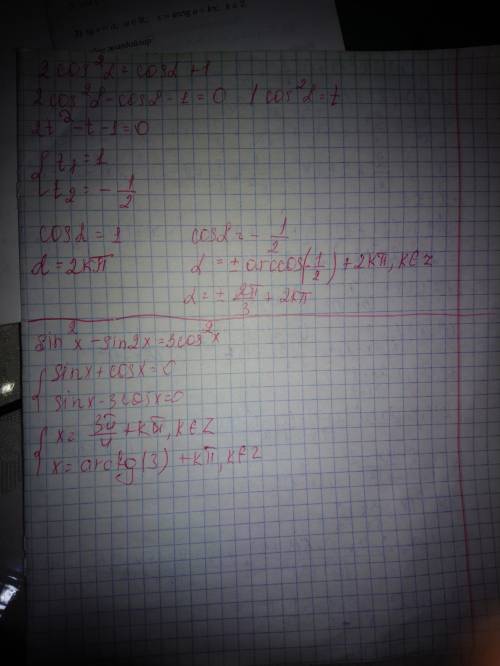 2cos²α = cosα + 1
2cos²α - cosα - 1 = 0   | cos²α = t
2t² - t - 1 = 0
{ t₁ = 1
t₂ = - 1/2
cosα = 1   cosα = - 1/2
α = 2kπ   α = ± arccos(- 1/2) + 2kπ, k∈Z
α = ± 2π/3 + 2kπ
sin²x - sin2x = 3cos²x
{ sinx + cosx = 0
sinx - 3cosx = 0
{ x = 3π/4 + kπ, k∈Z
x = arctg(3) + kπ, k∈Z